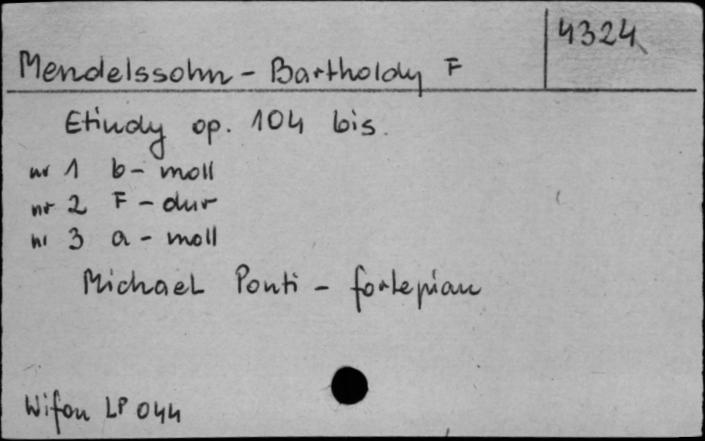 4324
Mendelssohn - Bartholdy F
Etiudy op. 104 bis.
nr 1 b - moll
nr 2 F - dur
nr 3 a - moll
Michael Ponti - fortepian
Wifon LP 044